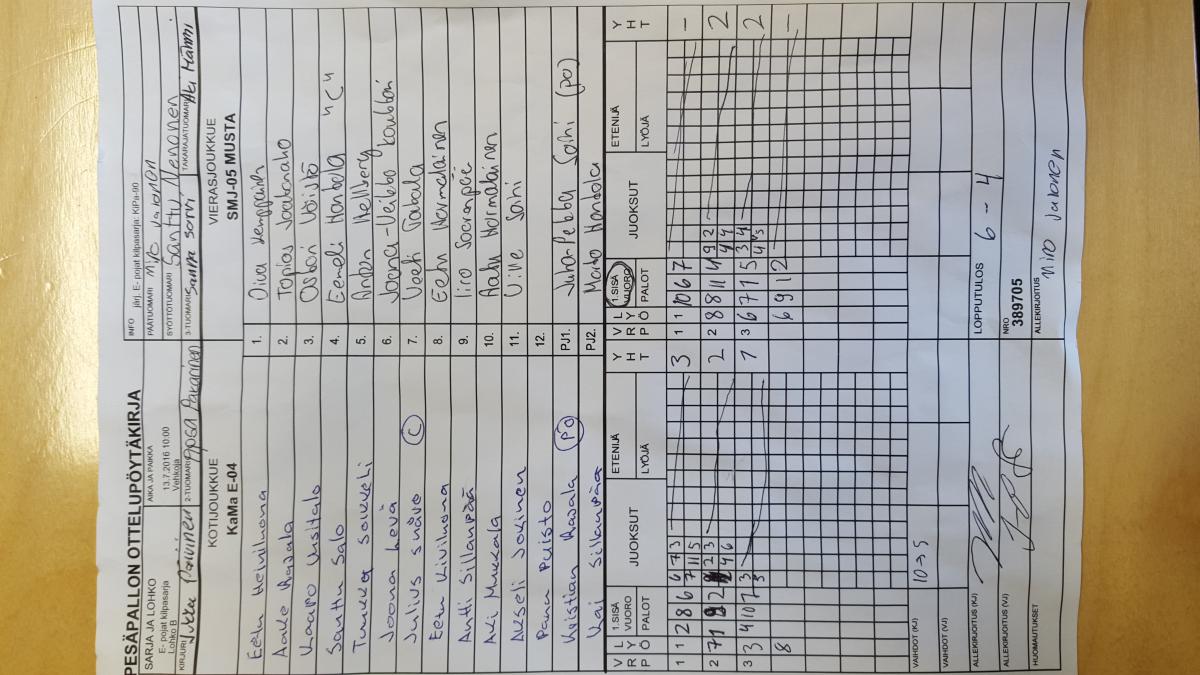 PESÄPALLON OTTELUPÖYTÄKIRJA
INFO järj. E- pojat kilpasarja: KiPa-90
SARJA JA LOHKO
E- pojat kilpasarja
Lohko B
AIKA JA PAIKKA
13.7.2016 10:00
Vehkoja
PÄÄTUOMARI Miro Valonen
SYÖTTÖTUOMARI Santtu Nenonen
KIRJURI Jukka Parvinen
2-TUOMARI Roosa Pakarinen
3-TUOMARI Sanna Sorri
TAKARAJATUOMARI Aki Hähmi
KOTIJOUKKUE
KaMa E-04
VIERASJOUKKUE
SMJ-05 MUSTA
Eetu Heiniluoma 1. Oiva Kemppainen
Aake Rajala 2. Topias Jaakonaho
Vaapo Uusitalo 3. Oskari Väistö
Santtu Salo 4. Eemeli Honkola "C"
Tuukka Soikkeli 5. Anton Hellberg
Joona Levä 6. Joona-Veikko Koukkari
Julius Snåre C 7. Veeti Takala
Eemi Kiviluoma 8. Eetu Harmaläinen
Antti Sillanpää 9. Iiro Saarenpää
Aki Mukkala 10. Aatu Harmaläinen
Akseli Jokinen 11. Ville Soini
Panu Puisto 12.
Kristian Rajala PO PJ1. Juha-Pekka Soini (po)
Kai Sillanpää PJ2. Marko Honkola
V R P L Y Ö 1.SISÄ VUORO PALOT JUOKSUT ETENIJÄ LYÖJÄ Y H T
V R P L Y Ö 1.SISÄ VUORO PALOT JUOKSUT ETENIJÄ LYÖJÄ Y H T
1 1 2 8 6 6 7 3 3 1 1 10 6 7 –
7 11 5
2 7 1 2 9 2 3 2 2 8 8 11 4 9 2 2
4 6 4 4
3 3 4 10 7 3 1 3 6 7 1 5 3 4 2
5 4
8 6 9 12 –
VAIHDOT (KJ) 10→5
VAIHDOT (VJ)
ALLEKIRJOITUS (KJ)
LOPPUTULOS 6 – 4
ALLEKIRJOITUS (VJ)
NRO
389705
HUOMAUTUKSET
ALLEKIRJOITUS Miro Valonen